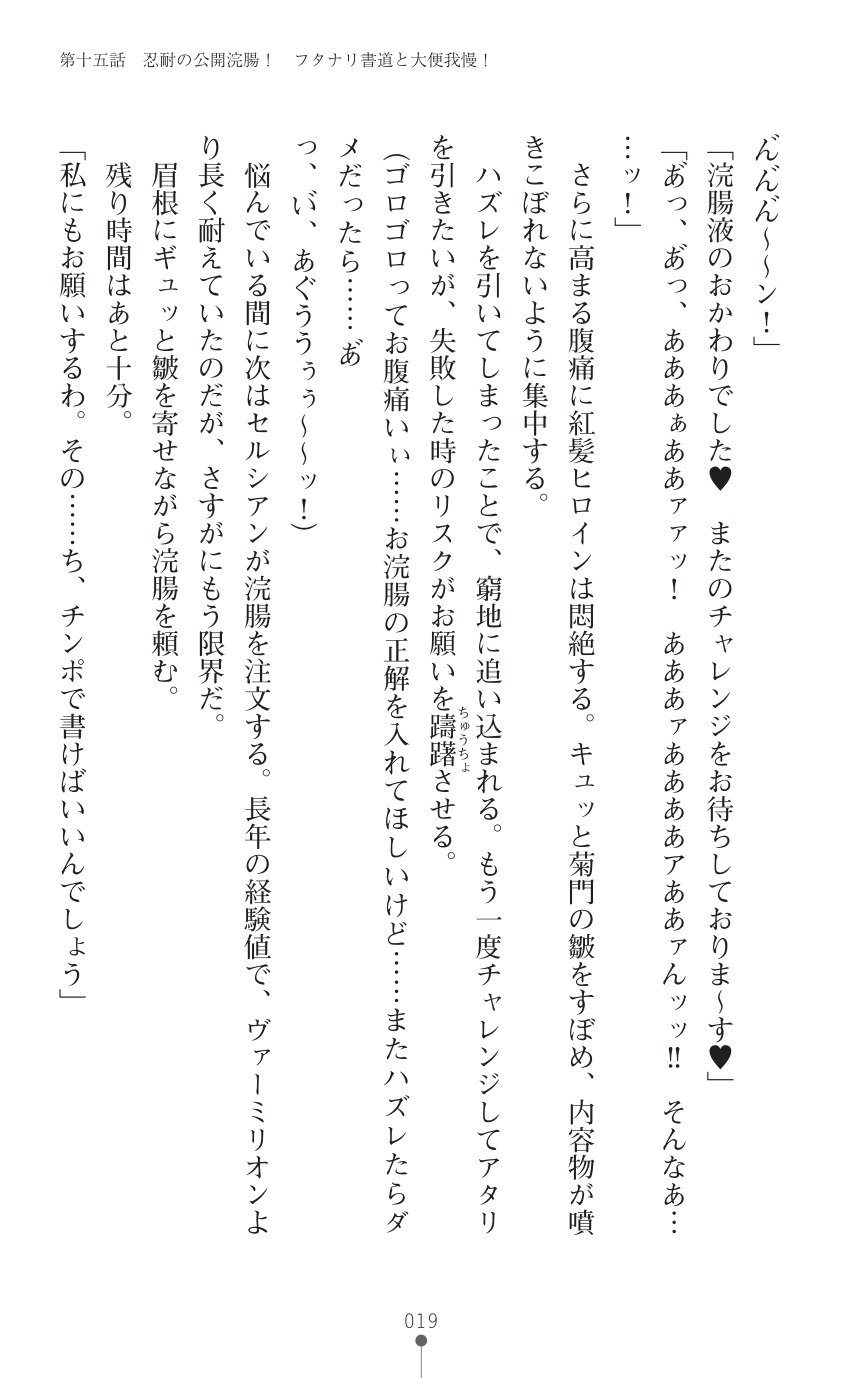 第十五話　忍耐の公開浣腸！　フタナリ書道と大便我慢！
ん゛ん゛ん゛～～ン！」
「浣腸液のおかわりでした♥　またのチャレンジをお待ちしておりま～す♥」
「あ゛っ、あ゛っ、あああぁああァァッ！　あああァああああアああァんッッ‼　そんなぁ…
…ッ！」
　さらに高まる腹痛に紅髪ヒロインは悶絶する。キュッと菊門の皺をすぼめ、内容物が噴
きこぼれないように集中する。
　ハズレを引いてしまったことで、窮地に追い込まれる。もう一度チャレンジしてアタリ
を引きたいが、失敗した時のリスクがお願いを躊躇させる。
ちゅうちょ
（ゴロゴロってお腹痛いぃ……お浣腸の正解を入れてほしいけど……またハズレたらダ
メだったら……あ゛
っ、い゛、あぐううぅぅ～～ッ！）
　悩んでいる間に次はセルシアンが浣腸を注文する。長年の経験値で、ヴァーミリオンよ
り長く耐えていたのだが、さすがにもう限界だ。
　眉根にギュッと皺を寄せながら浣腸を頼む。
　残り時間はあと十分。
「私にもお願いするわ。その……ち、チンポで書けばいいんでしょう」
019